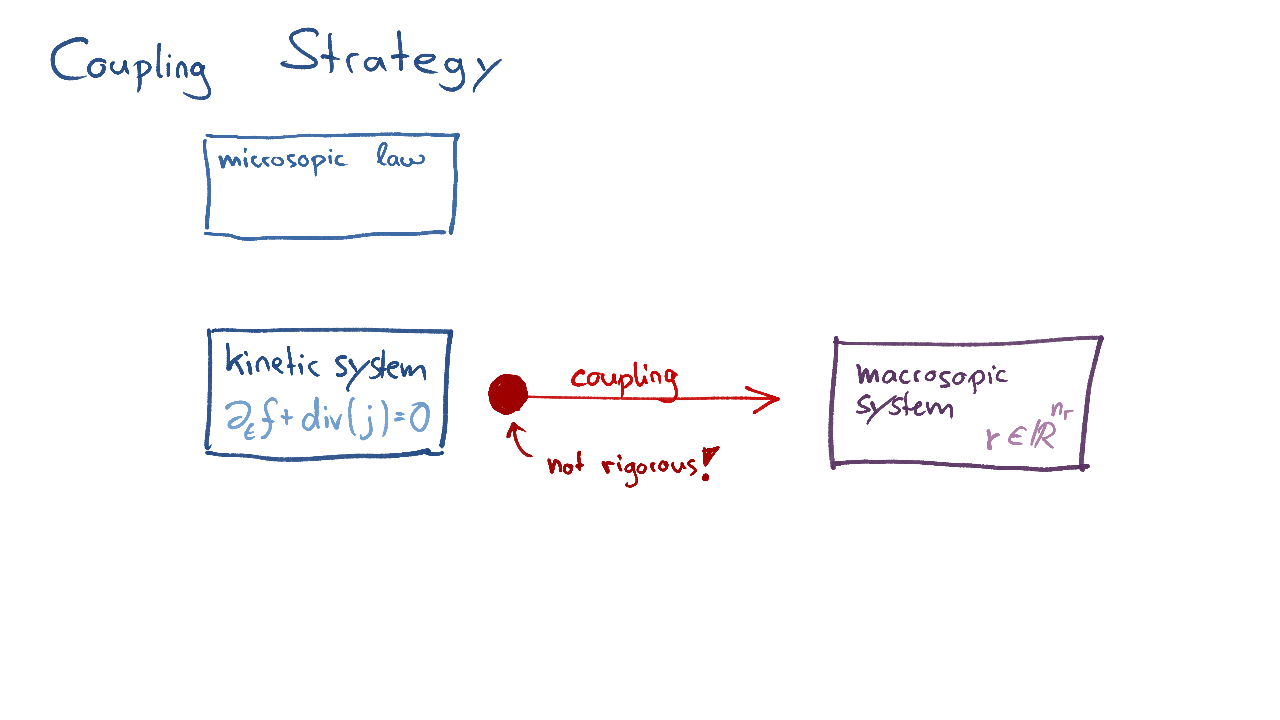 Coupling Strategy
microsopic law
kinetic system
∂ₜf + div(j) = 0
coupling
not rigorous!
macrosopic
system
r ∈ ℝⁿʳ